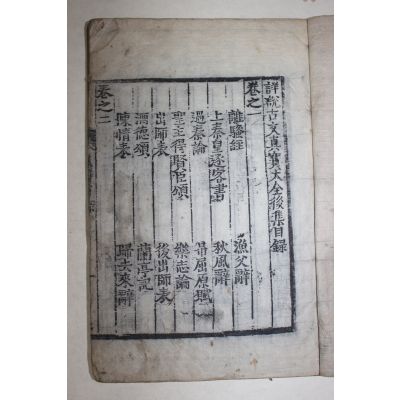 詳說古文真寶大全後集目錄
卷之一
離騷經 漁父辭
上秦皇逐客書 秋風辭
過秦論 弔屈原賦
聖主得賢臣頌 樂志論
出師表 後出師表
酒德頌 蘭亭記
陳情表 歸去來辭
卷之二